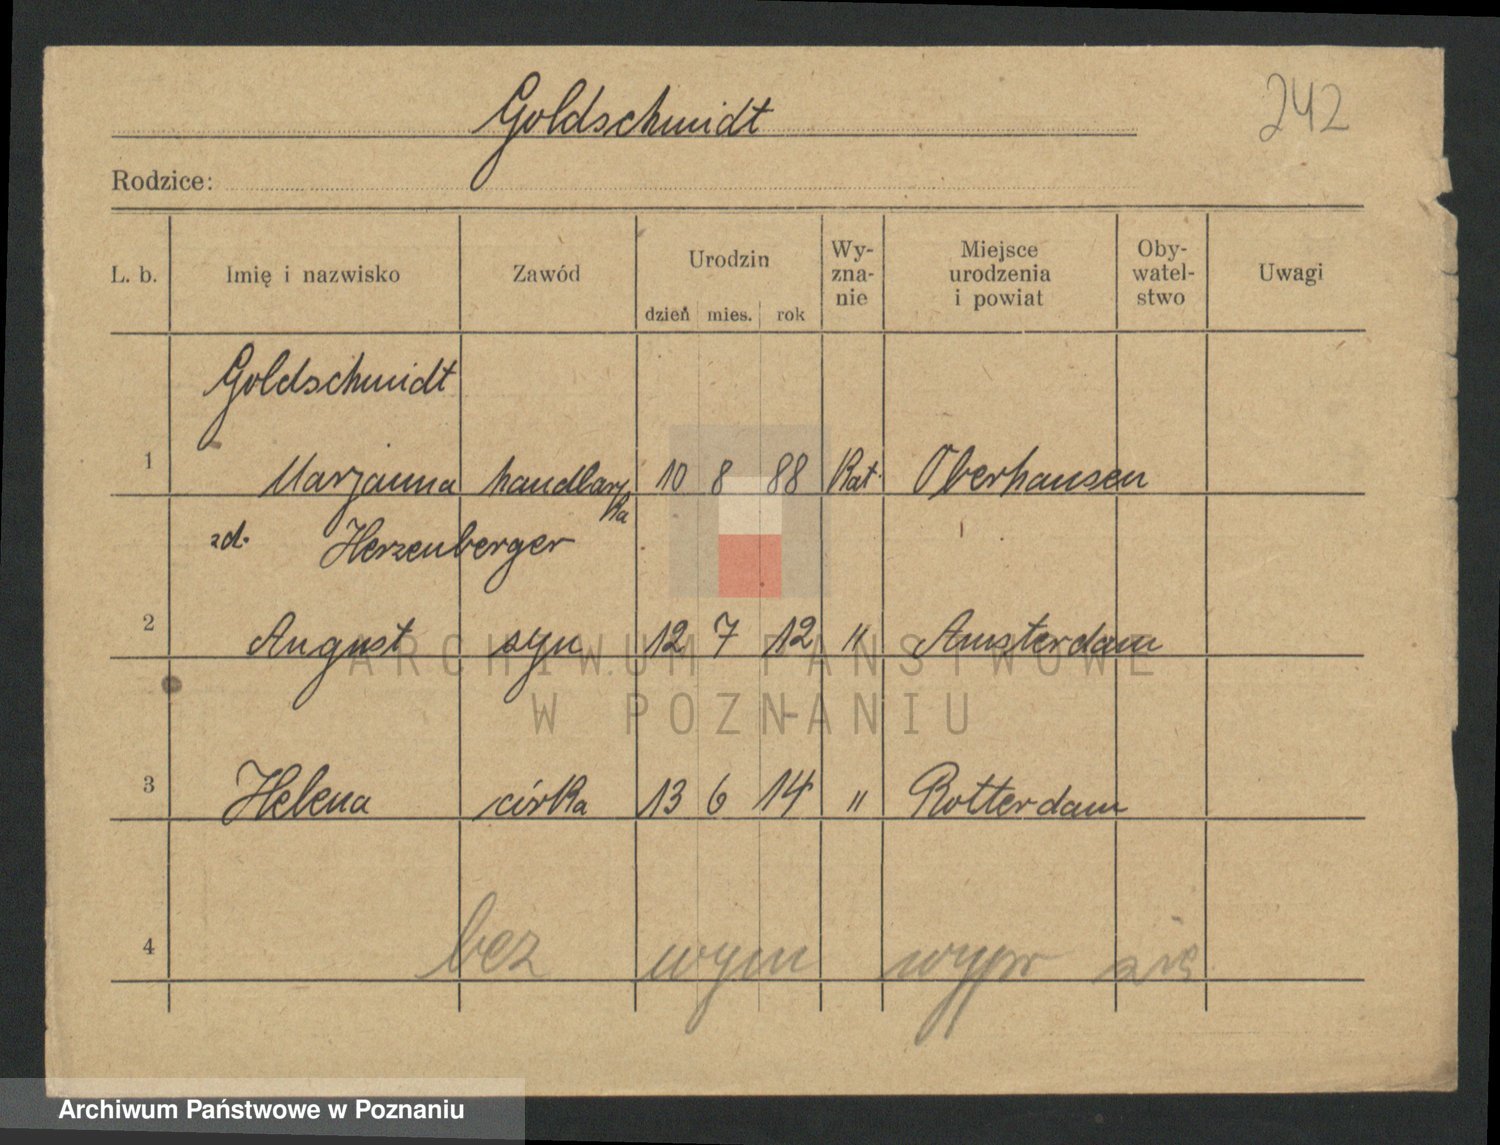 Goldschmidt
242
Rodzice:
L. b. Imię i nazwisko Zawód Urodzin dzień mies. rok Wy-zna-nie Miejsce urodzenia i powiat Oby-watel-stwo Uwagi
Goldschmidt
1 Marjanna handlarka 10 8 88 Kat. Oberhausen
zd. Herzenberger
2 August syn 12 7 12 " Amsterdam
3 Helena córka 13 6 14 " Rotterdam
4 bez wym wypr się
ARCHIWUM PAŃSTWOWE
W POZNANIU
Archiwum Państwowe w Poznaniu